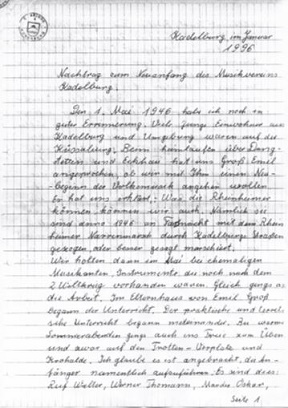 Kadelburg im Januar
1996
Nachtrag zum Neuanfang des Musikvereins
Kadelburg.
Den 1. Mai 1946 habe ich noch in
guter Erinnerung. Viele junge Einwohner aus
Kadelburg und Umgebung waren auf die
Küssaburg. Beim heimlaufen über Dang-
stetten und hat uns Groß Emil
angesprochen, ob wir mit Ihm einen Neu-
beginn der Volksmusik angehen wollen.
Er hat uns erklärt, Was die Rheinheimer
können können wir auch. Nämlich sie
sind anno 1946 an Fasnacht mit dem Rhein
heimer Narrenmarsch durch Kadelburgs Straßen
gezogen oder besser gesagt marschiert.
Wir holten dann im Mai bei ehemaligen
Musikanten, Instrumente, die noch nach dem
2 Weltkrieg vorhanden waren. Gleich gings an
die Arbeit. Im Elternhaus von Emil Groß
begann der Unterricht. Der praktische und theoreti-
sche Unterricht begann miteinander. An warmen
Sommerabenden gings auch ins Freie zum üben
und zwar auf den Trotten-Vorplatz und
. Ich glaube es ist angebracht, die An-
fänger namentlich aufzuführen. Es sind dies:
Ruf Walter, Werner Thomann, Oskar,
Seite 1